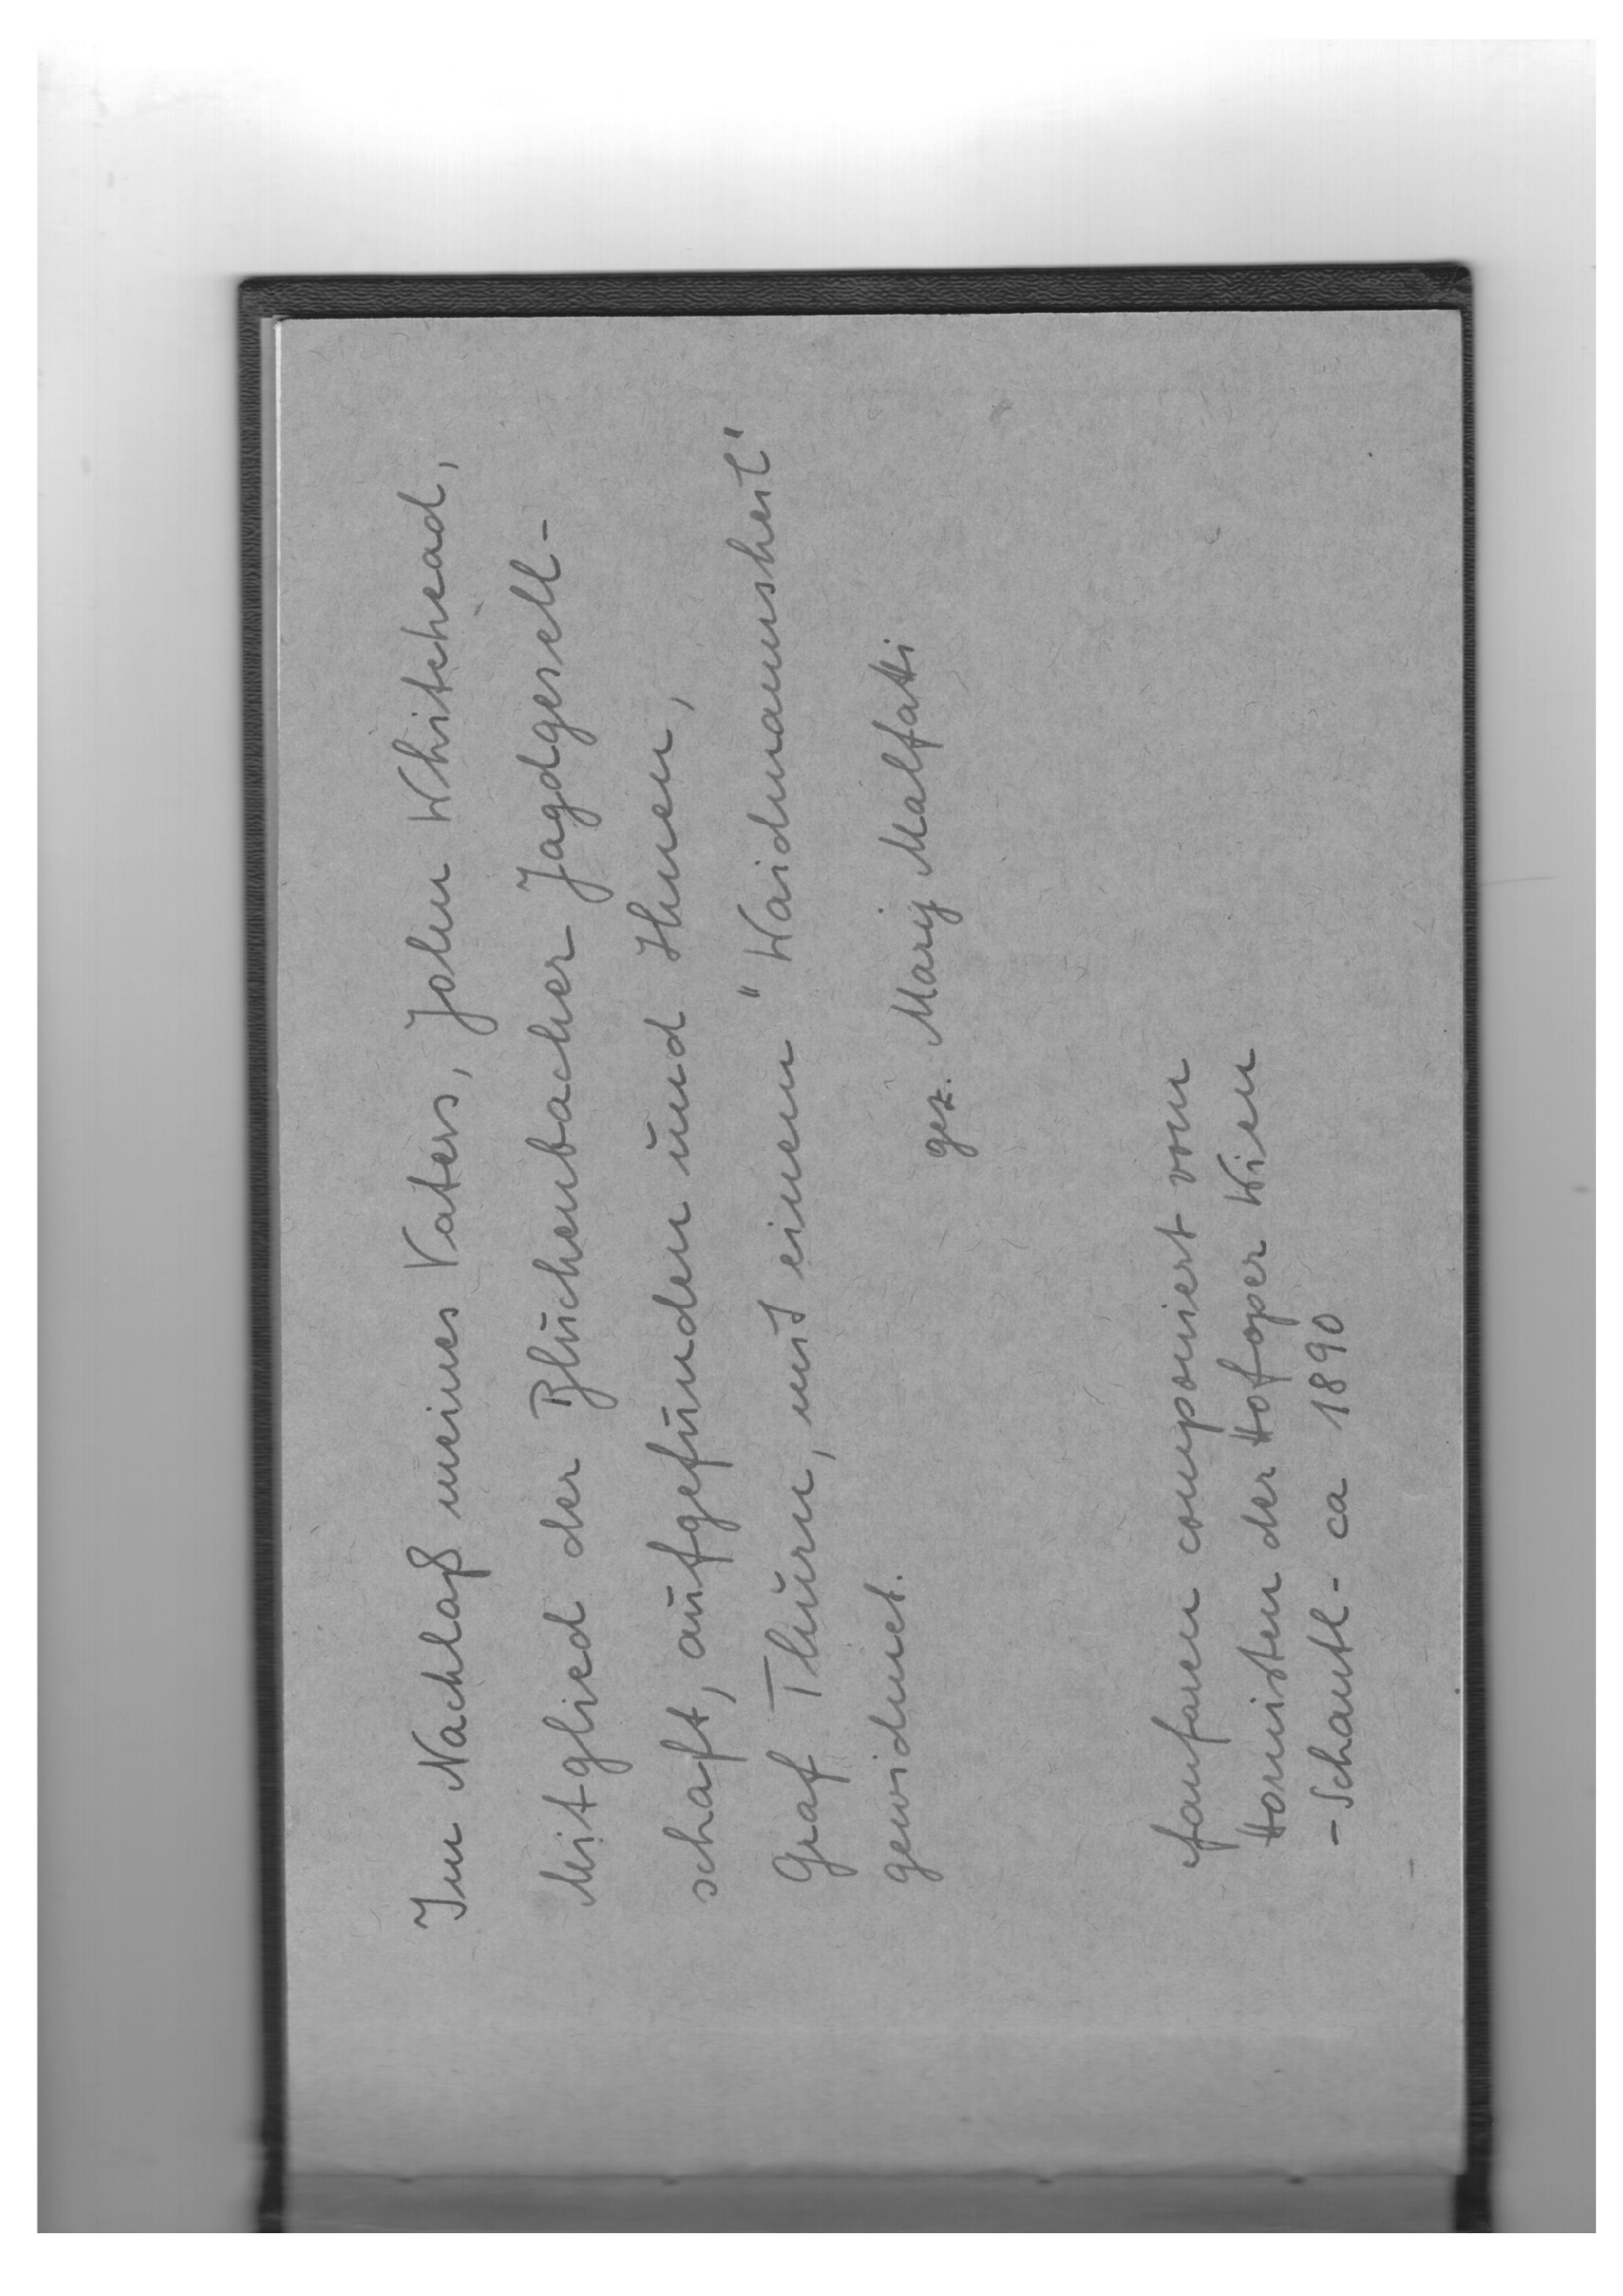 Im Nachlaß meines Vaters, John Whitehead,
Mitglied der Blüchenbacher Jagdgesell-
schaft, aufgefunden und Ihnen,
Graf Thurn, mit einem "Waidmannsheil"
gewidmet.
gez. Mary Malfatti
Fanfaren componiert vom
Hornisten der Hofoper Wien
- Schantl - ca 1890